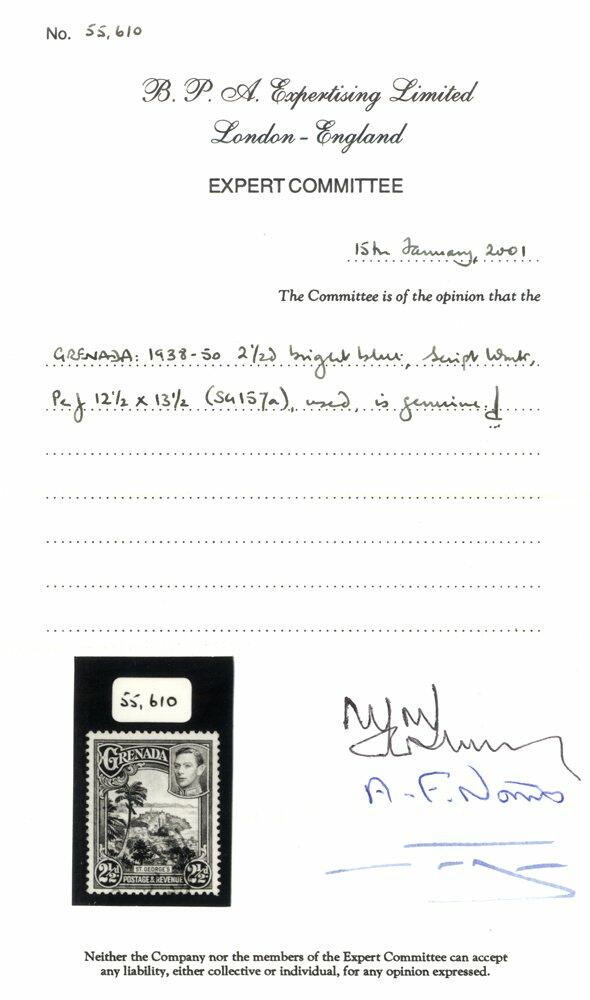 No. 55,610
B. P. A. Expertising Limited
London - England
EXPERT COMMITTEE
15th January, 2001
The Committee is of the opinion that the
GRENADA: 1938-50 2½d bright blue, Script Wmk,
Perf 12½ x 13½ (SG157a), used, is genuine.
55,610
GRENADA
ST. GEORGE'S
2½d POSTAGE & REVENUE 2½d
A. F. Norris
Neither the Company nor the members of the Expert Committee can accept
any liability, either collective or individual, for any opinion expressed.